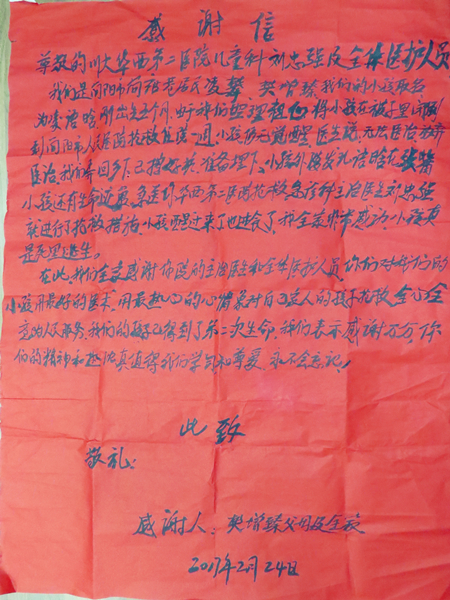 感谢信
尊敬的川大华西第二医院儿童科刘忠强及全体医护人员
我们是 阳市 居民凌 樊增臻我们的小孩取名
为凌语晗刚出生五个月,由于我们 将小孩在被子里闷到
到 阳市人民医院抢救 一周,小孩仍不 醒,医生说,无法医治放弃
医治,我们 回乡下,已 好 准备埋下,小孩外 发 语晗在
小孩还有生命 急送到华西第二医院抢救急诊科主治医生刘忠强
就进行了抢救措施,小孩醒过来了也 了,我全家非常感动,小孩真
是死里逃生。
在此,我们全家感谢你院的主治医生和全体医护人员,你们对我们的
小孩用最好的医术,用最热心的心情象对自己 人的孩子抢救 全心全
意为人民服务,我们的孩子已得到了第二次生命,我们表示感谢万分,你
们的精神和 真值得我们学习和尊爱,永不会忘记!
此致
敬礼:
感谢人:樊增臻父母及全家
2017年2月24日